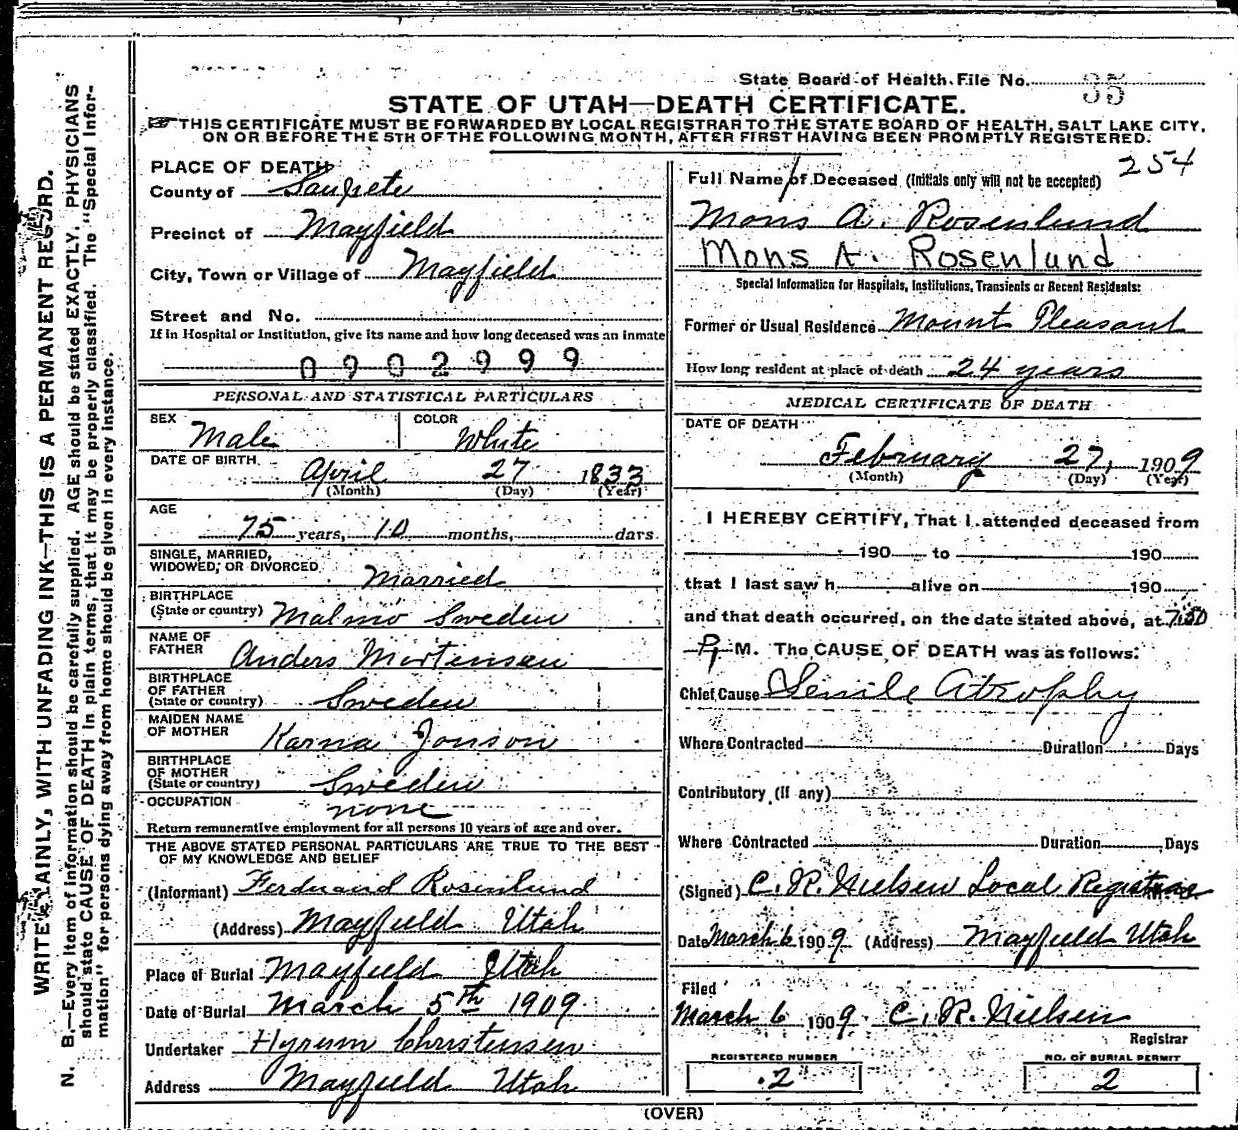 State Board of Health File No. 35
STATE OF UTAH—DEATH CERTIFICATE.
THIS CERTIFICATE MUST BE FORWARDED BY LOCAL REGISTRAR TO THE STATE BOARD OF HEALTH, SALT LAKE CITY,
ON OR BEFORE THE 5TH OF THE FOLLOWING MONTH, AFTER FIRST HAVING BEEN PROMPTLY REGISTERED.
PLACE OF DEATH
County of Sanpete
Precinct of Mayfield
City, Town or Village of Mayfield
Street and No.
If in Hospital or Institution, give its name and how long deceased was an inmate
0902999
PERSONAL AND STATISTICAL PARTICULARS
SEX Male COLOR White
DATE OF BIRTH April 27 1833
(Month) (Day) (Year)
AGE
75 years, 10 months, days.
SINGLE, MARRIED,
WIDOWED, OR DIVORCED Married
BIRTHPLACE
(State or country) Malmo Sweden
NAME OF
FATHER Anders Mortensen
BIRTHPLACE
OF FATHER
(State or country) Sweden
MAIDEN NAME
OF MOTHER Karna Jonson
BIRTHPLACE
OF MOTHER
(State or country) Sweden
OCCUPATION none
Return remunerative employment for all persons 10 years of age and over.
THE ABOVE STATED PERSONAL PARTICULARS ARE TRUE TO THE BEST
OF MY KNOWLEDGE AND BELIEF
(Informant) Ferdinand Rosenlund
(Address) Mayfield Utah
Place of Burial Mayfield Utah
Date of Burial March 5th 1909
Undertaker Hyrum Christensen
Address Mayfield Utah
254
Full Name of Deceased (Initials only will not be accepted)
Mons A. Rosenlund
Mons A. Rosenlund
Special Information for Hospitals, Institutions, Transients or Recent Residents:
Former or Usual Residence Mount Pleasant
How long resident at place of death 24 years
MEDICAL CERTIFICATE OF DEATH
DATE OF DEATH
February 27, 1909
(Month) (Day) (Year)
I HEREBY CERTIFY, That I attended deceased from
190 to 190
that I last saw h alive on 190
and that death occurred, on the date stated above, at 7:50
P. M. The CAUSE OF DEATH was as follows:
Chief Cause Senile Atrophy
Where Contracted Duration Days
Contributory (if any)
Where Contracted Duration Days
(Signed) C. R. Nielsen Local Registrar
Date March 6 1909 (Address) Mayfield Utah
Filed
March 6 1909 C. R. Nielsen
Registrar
REGISTERED NUMBER
2
NO. OF BURIAL PERMIT
2
(OVER)
WRITE PLAINLY, WITH UNFADING INK—THIS IS A PERMANENT RECORD.
N. B.—Every item of information should be carefully supplied. AGE should be stated EXACTLY. PHYSICIANS
should state CAUSE OF DEATH in plain terms, that it may be properly classified. The "Special Infor-
mation" for persons dying away from home should be given in every instance.